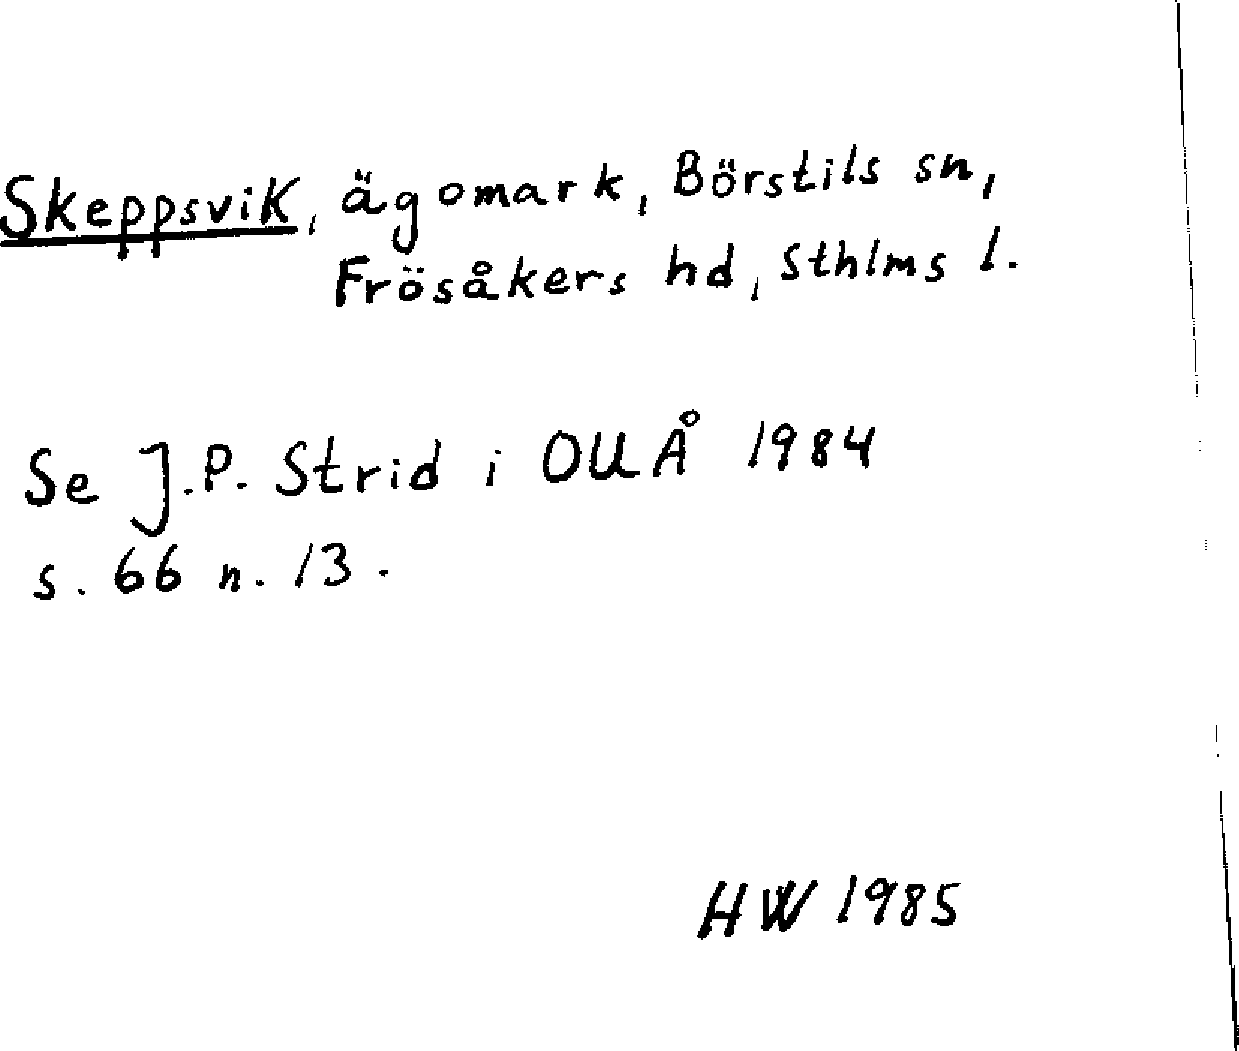 Skeppsvik, ägomark, Börstils sn,
Frösåkers hd, Sthlms l.
Se J.P. Strid i OUÅ 1984
s. 66 n. 13.
HW 1985